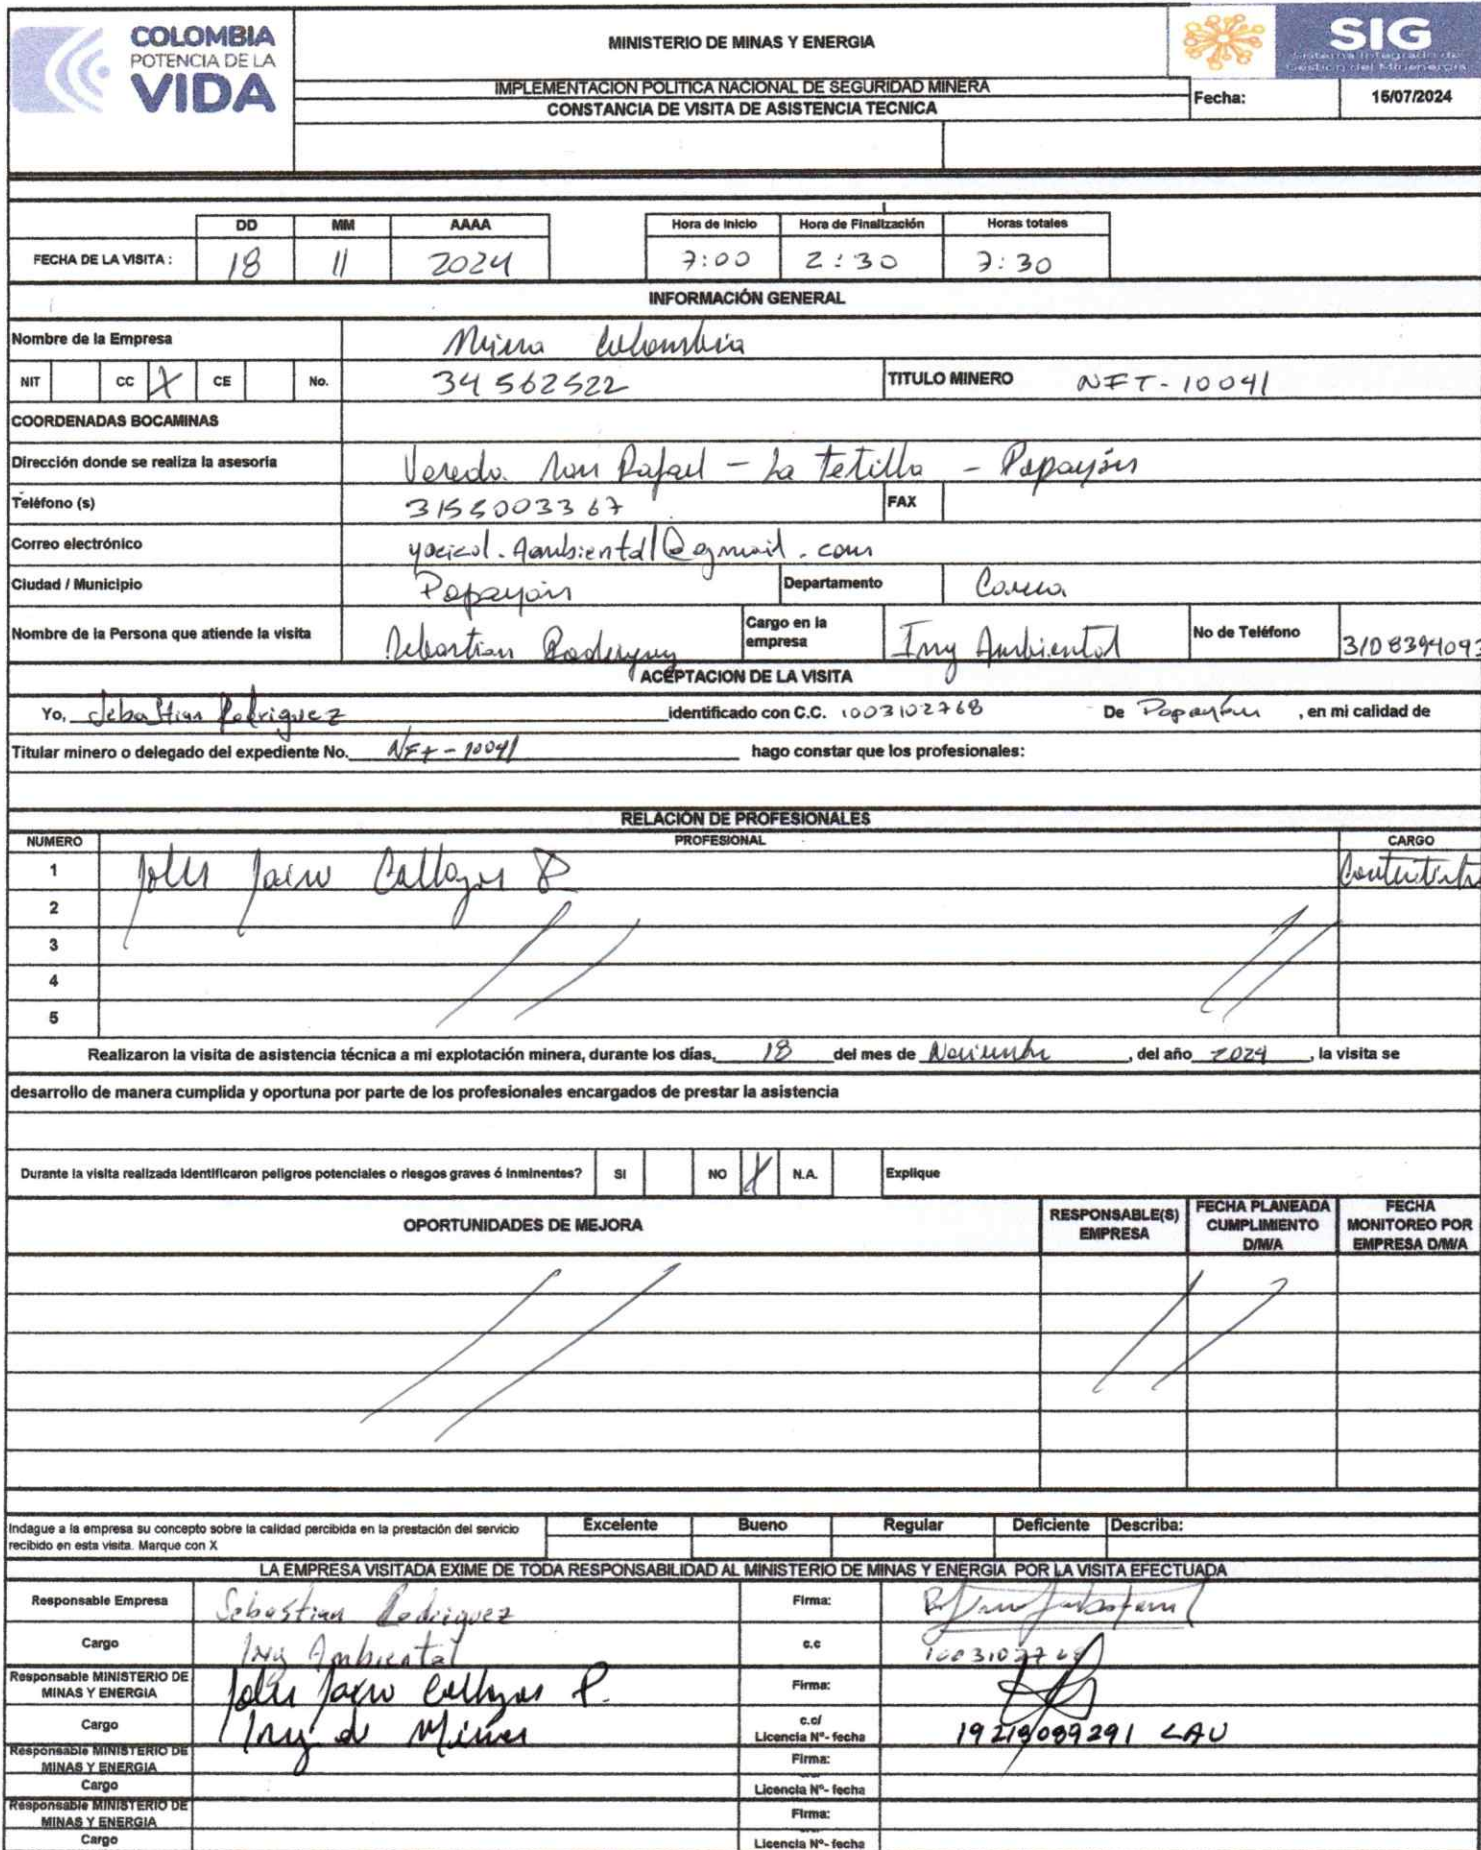 COLOMBIA
POTENCIA DE LA
VIDA
MINISTERIO DE MINAS Y ENERGIA
SIG
Sistema Integrado de
Gestión del Minenergía
IMPLEMENTACION POLITICA NACIONAL DE SEGURIDAD MINERA
CONSTANCIA DE VISITA DE ASISTENCIA TECNICA
Fecha: 15/07/2024
DD MM AAAA Hora de Inicio Hora de Finalización Horas totales
FECHA DE LA VISITA : 18 11 2024 7:00 2:30 7:30
INFORMACIÓN GENERAL
Nombre de la Empresa Colombia
NIT CC X CE No. 34562522 TITULO MINERO NFT-10041
COORDENADAS BOCAMINAS
Dirección donde se realiza la asesoría Vereda San Rafael - La Tetilla - Popayán
Teléfono (s) 3155003367 FAX
Correo electrónico
Ciudad / Municipio Popayán Departamento Cauca
Nombre de la Persona que atiende la visita Sebastian Rodriguez Cargo en la empresa Ing Ambiental No de Teléfono 3108394093
ACEPTACION DE LA VISITA
Yo, Sebastian Rodriguez identificado con C.C. 1003102768 De Popayán , en mi calidad de
Titular minero o delegado del expediente No. NFT-10041 hago constar que los profesionales:
RELACIÓN DE PROFESIONALES
NUMERO PROFESIONAL CARGO
1 Jairo Collazos P Contratista
2
3
4
5
Realizaron la visita de asistencia técnica a mi explotación minera, durante los días, 18 del mes de Noviembre , del año 2024 , la visita se
desarrollo de manera cumplida y oportuna por parte de los profesionales encargados de prestar la asistencia
Durante la visita realizada identificaron peligros potenciales o riesgos graves ó inminentes? SI NO X N.A. Explique
OPORTUNIDADES DE MEJORA RESPONSABLE(S) EMPRESA FECHA PLANEADA CUMPLIMIENTO D/M/A FECHA MONITOREO POR EMPRESA D/M/A
Indague a la empresa su concepto sobre la calidad percibida en la prestación del servicio
recibido en esta visita. Marque con X Excelente Bueno Regular Deficiente Describa:
LA EMPRESA VISITADA EXIME DE TODA RESPONSABILIDAD AL MINISTERIO DE MINAS Y ENERGIA POR LA VISITA EFECTUADA
Responsable Empresa Sebastian Rodriguez Firma:
Cargo Ing Ambiental c.c 1003102768
Responsable MINISTERIO DE MINAS Y ENERGIA Jairo Collazos P. Firma:
Cargo Ing de Minas c.c/ Licencia Nº- fecha 19219089291 CAU
Responsable MINISTERIO DE MINAS Y ENERGIA Firma:
Cargo Licencia Nº- fecha
Responsable MINISTERIO DE MINAS Y ENERGIA Firma:
Cargo Licencia Nº- fecha